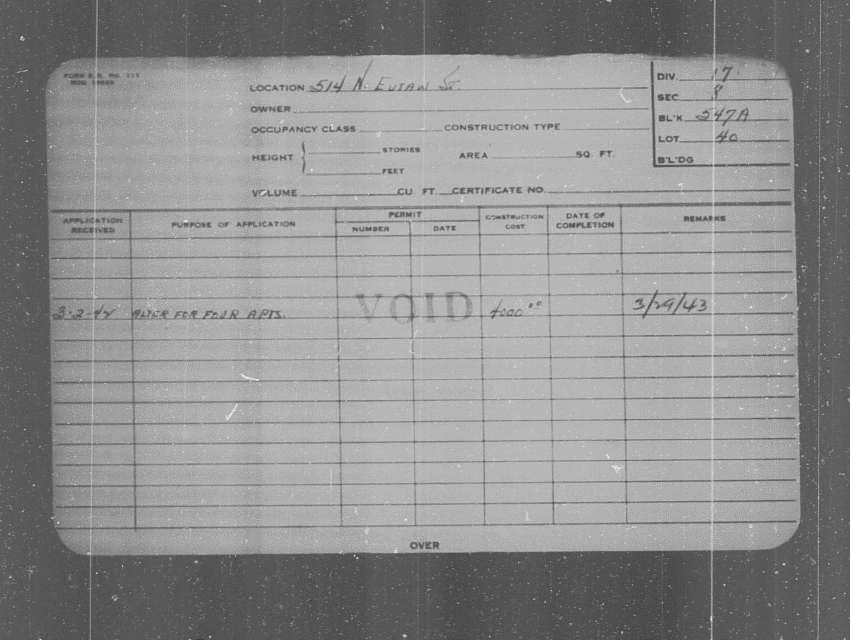 FORM B.E. No. 311
LOCATION 514 N. EUTAW ST.
OWNER
OCCUPANCY CLASS CONSTRUCTION TYPE
HEIGHT { STORIES
FEET
AREA SQ. FT.
VOLUME CU. FT. CERTIFICATE NO.
DIV. 17
SEC 8
BL'K 547A
LOT 40
B'L'DG
APPLICATION RECEIVED
PURPOSE OF APPLICATION
PERMIT
NUMBER DATE
CONSTRUCTION COST
DATE OF COMPLETION
REMARKS
3-2-42 ALTER FOR FOUR APTS. VOID 4000 00 3/29/43
OVER